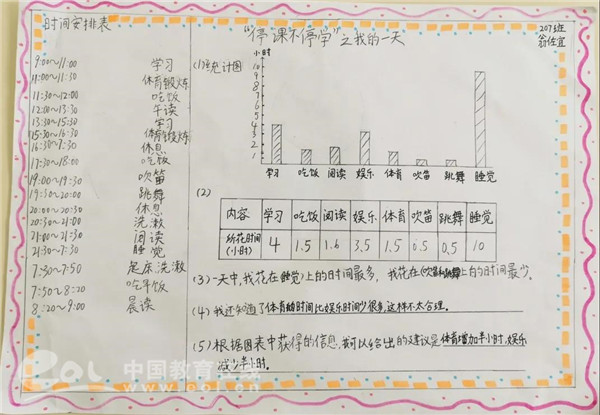 时间安排表
"停课不停学"之我的一天
207班
翁佐宜
9:00~11:00 学习
11:00~11:30 体育锻炼
11:30~12:00 吃饭
12:00~13:30 午读
13:30~15:30 学习
15:30~16:30 体育锻炼
16:30~17:30 休息
17:30~18:00 吃饭
19:00~19:30 吹笛
19:30~20:00 跳舞
20:00~20:30 休息
20:30~21:00 洗漱
21:00~21:30 阅读
21:30~7:30 睡觉
7:30~7:50 起床、洗漱
7:50~8:20 吃早饭
8:20~9:00 晨读
(1)统计图
小时
10
9
8
7
6
5
4
3
2
1
学习 吃饭 阅读 娱乐 体育 吹笛 跳舞 睡觉
(2)
内容 学习 吃饭 阅读 娱乐 体育 吹笛 跳舞 睡觉
所花时间(小时) 4 1.5 1.6 3.5 1.5 0.5 0.5 10
(3)一天中,我花在(睡觉)上的时间最多,我花在(吹笛和跳舞)上的时间最少。
(4)我还知道了体育的时间比娱乐时间少很多,这样不太合理。
(5)根据图表中获得的信息,我可以给出的建议是体育增加半小时,娱乐
减少半小时。
eol 中国教育在线
www.eol.cn